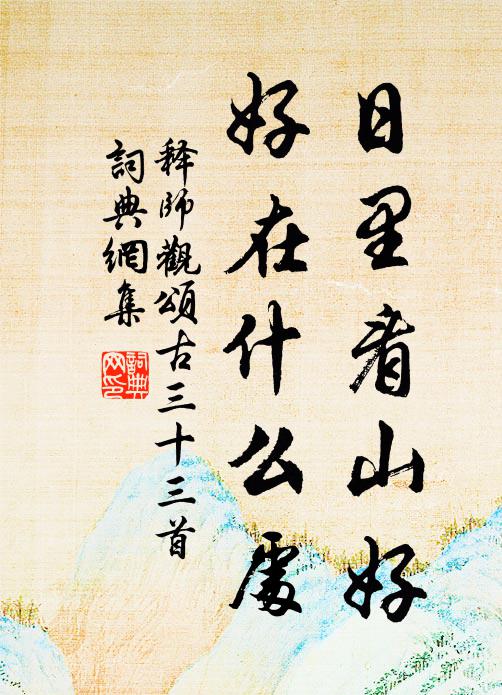 日里看山好
好在什么處
释師觀頌古三十三首
詞典網集
詞典
网印